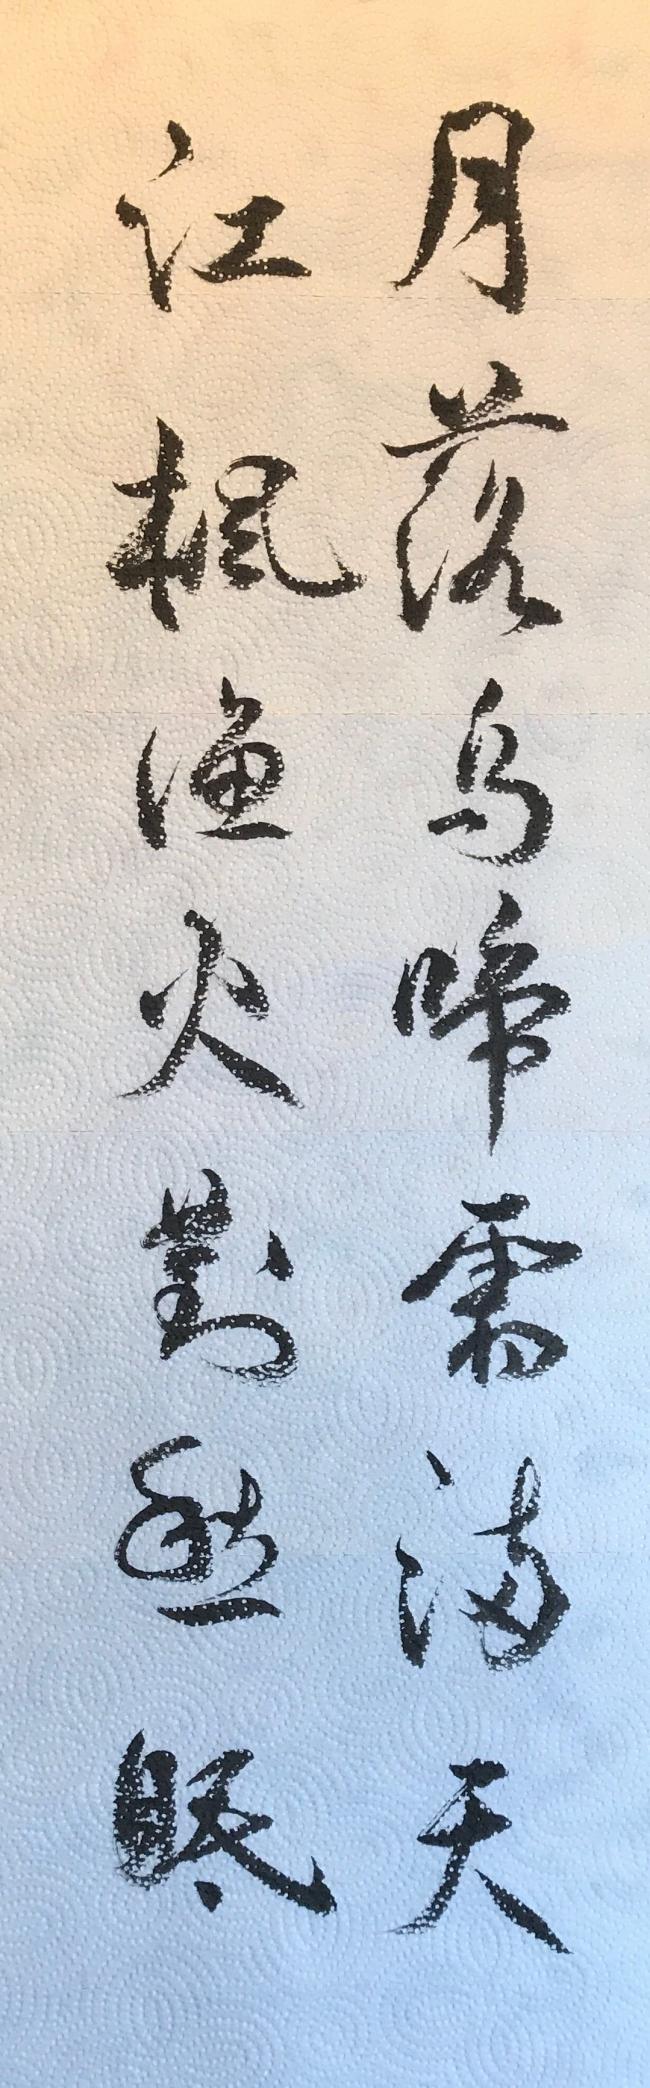 月落烏啼霜滿天
江楓漁火對愁眠